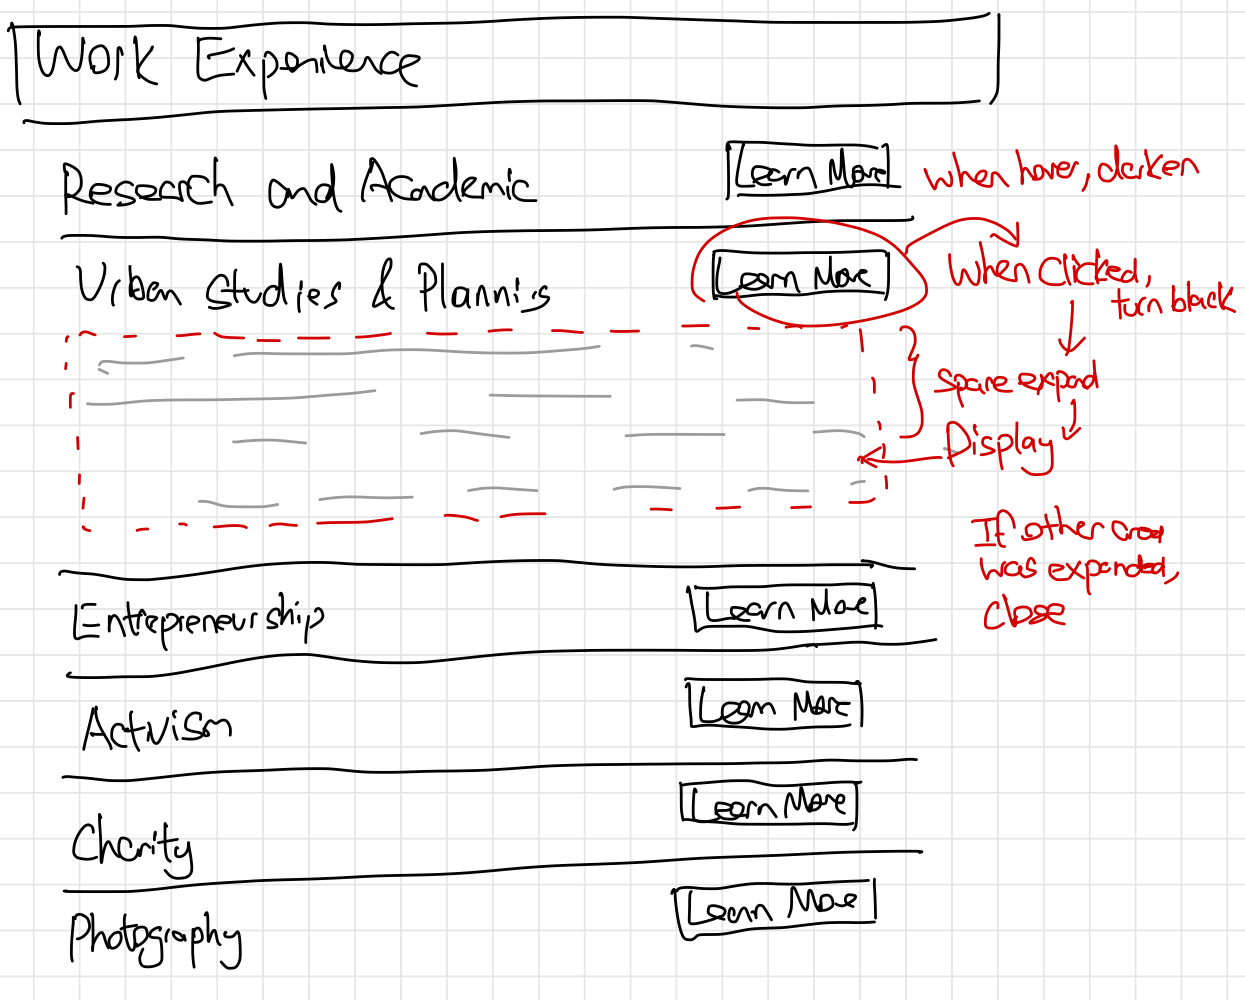 Work Experience
Research and Academic
Learn More
when hover, darken
Urban Studies & Planning
Learn More
When clicked,
turn black
Space expand
Display
If other area
was expanded,
close
Entrepreneurship
Learn More
Activism
Learn More
Charity
Learn More
Photography
Learn More